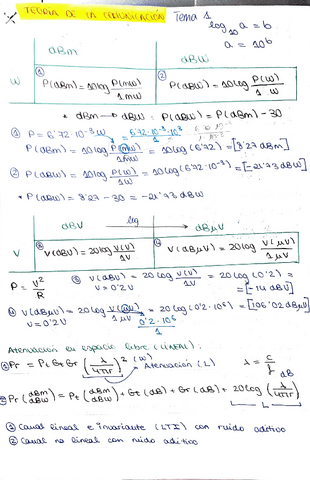 TEORIA DE LA COMUNICACIÓN Tema 1
log₁₀ a = b
a = 10^b
dBm dBW
W ① P(dBm) = 10log P(mW)/1mW ② P(dBW) = 10log P(W)/1W
* dBm → dBW : P(dBW) = P(dBm) - 30
① P = 6'72·10⁻³ W 6'72·10⁻³·10³/1
P(dBm) = 10log P(mW)/1mW = 10log (6'72) = [8'27 dBm]
② P(dBW) = 10log P(W)/1W = 10log (6'72·10⁻³) = [-21'73 dBW]
* P(dBW) = 8'27 - 30 = -21'73 dBW
dBV log dBμV
V ③ V(dBV) = 20log V(V)/1V ④ V(dBμV) = 20log V(μV)/1μV
P = V²/R ③ V(dBV) = 20log V(V)/1V = 20log (0'2) =
V = 0'2V = [-14 dBV]
④ V(dBμV) = 20log V(μV)/1μV = 20log (0'2·10⁶) = [106'02 dBμV]
V = 0'2V 0'2·10⁶/1
Atenuación en espacio libre (LINEAL):
Pr = Pt Gt Gr (λ/4πr)² (W) λ = c/f
Atenuación (L)
Pr (dBm/dBW) = Pt (dBm/dBW) + Gt (dB) + Gr (dB) + 20log (λ/4πr) dB
L
① Canal lineal e invariante (LTI) con ruido aditivo
② Canal no lineal con ruido aditivo